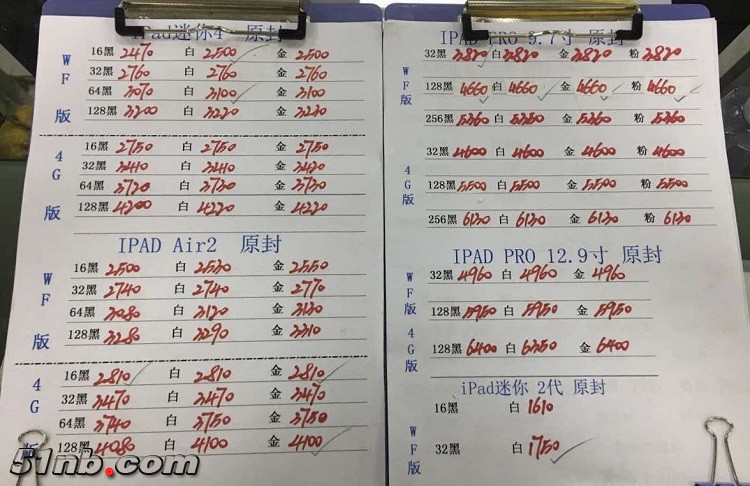 iPad迷你4 原封
WF版
16黑 2470 白 2500 金 2500
32黑 2760 白 2760 金 2760
64黑 3070 白 3100 金 3100
128黑 3200 白 3220 金 3220
4G版
16黑 2750 白 2750 金 2750
32黑 3410 白 3410 金 3420
64黑 3720 白 3730 金 3730
128黑 4200 白 4220 金 4220
IPAD Air2 原封
WF版
16黑 2500 白 2530 金 2550
32黑 2740 白 2740 金 2770
64黑 3080 白 3120 金 3130
128黑 3280 白 3290 金 3310
4G版
16黑 2810 白 2810 金 2810
32黑 3470 白 3470 金 3470
64黑 3740 白 3750 金 3750
128黑 4080 白 4100 金 4100
IPAD PRO 9.7寸 原封
WF版
32黑 3820 白 3820 金 3820 粉 3820
128黑 4660 白 4660 金 4660 粉 4660
256黑 5360 白 5350 金 5360 粉 5360
4G版
32黑 4600 白 4600 金 4600 粉 4600
128黑 5500 白 5500 金 5500 粉 5500
256黑 6130 白 6130 金 6130 粉 6130
IPAD PRO 12.9寸 原封
WF版
32黑 4960 白 4960 金 4960
128黑 5950 白 5950 金 5950
4G版
128黑 6400 白 6350 金 6400
iPad迷你 2代 原封
WF版
16黑 白 1610
32黑 白 1750
51nb.com